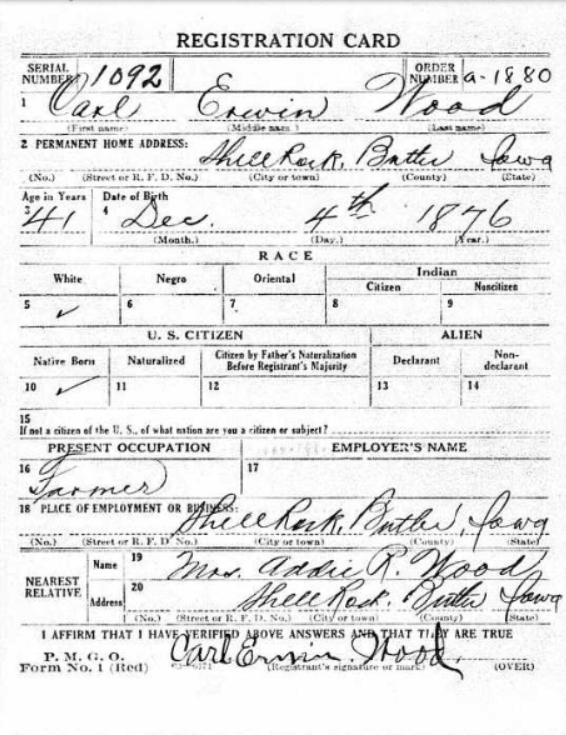 REGISTRATION CARD
SERIAL NUMBER 1092 ORDER NUMBER a-1880
1 Carl Erwin Wood
(First name) (Middle name) (Last name)
2 PERMANENT HOME ADDRESS: Shell Rock, Butler Iowa
(No.) (Street or R. F. D. No.) (City or town) (County) (State)
Age in Years Date of Birth
3 41 4 Dec. 4th 1876
(Month.) (Day.) (Year.)
RACE
White Negro Oriental Indian
Citizen Noncitizen
5 ✓ 6 7 8 9
U. S. CITIZEN ALIEN
Native Born Naturalized Citizen by Father's Naturalization Before Registrant's Majority Declarant Non-declarant
10 ✓ 11 12 13 14
15
If not a citizen of the U. S., of what nation are you a citizen or subject?
PRESENT OCCUPATION EMPLOYER'S NAME
16 Farmer 17
18 PLACE OF EMPLOYMENT OR BUSINESS: Shell Rock, Butler, Iowa
(No.) (Street or R. F. D No.) (City or town) (County) (State)
NEAREST RELATIVE
Name 19 Mrs. Addie R. Wood
Address 20 Shell Rock. Butler Iowa
(No.) (Street or R. F. D. No.) (City or town) (County) (State)
I AFFIRM THAT I HAVE VERIFIED ABOVE ANSWERS AND THAT THEY ARE TRUE
P. M. G. O.
Form No. 1 (Red) Carl Erwin. Wood.
(Registrant's signature or mark) (OVER)